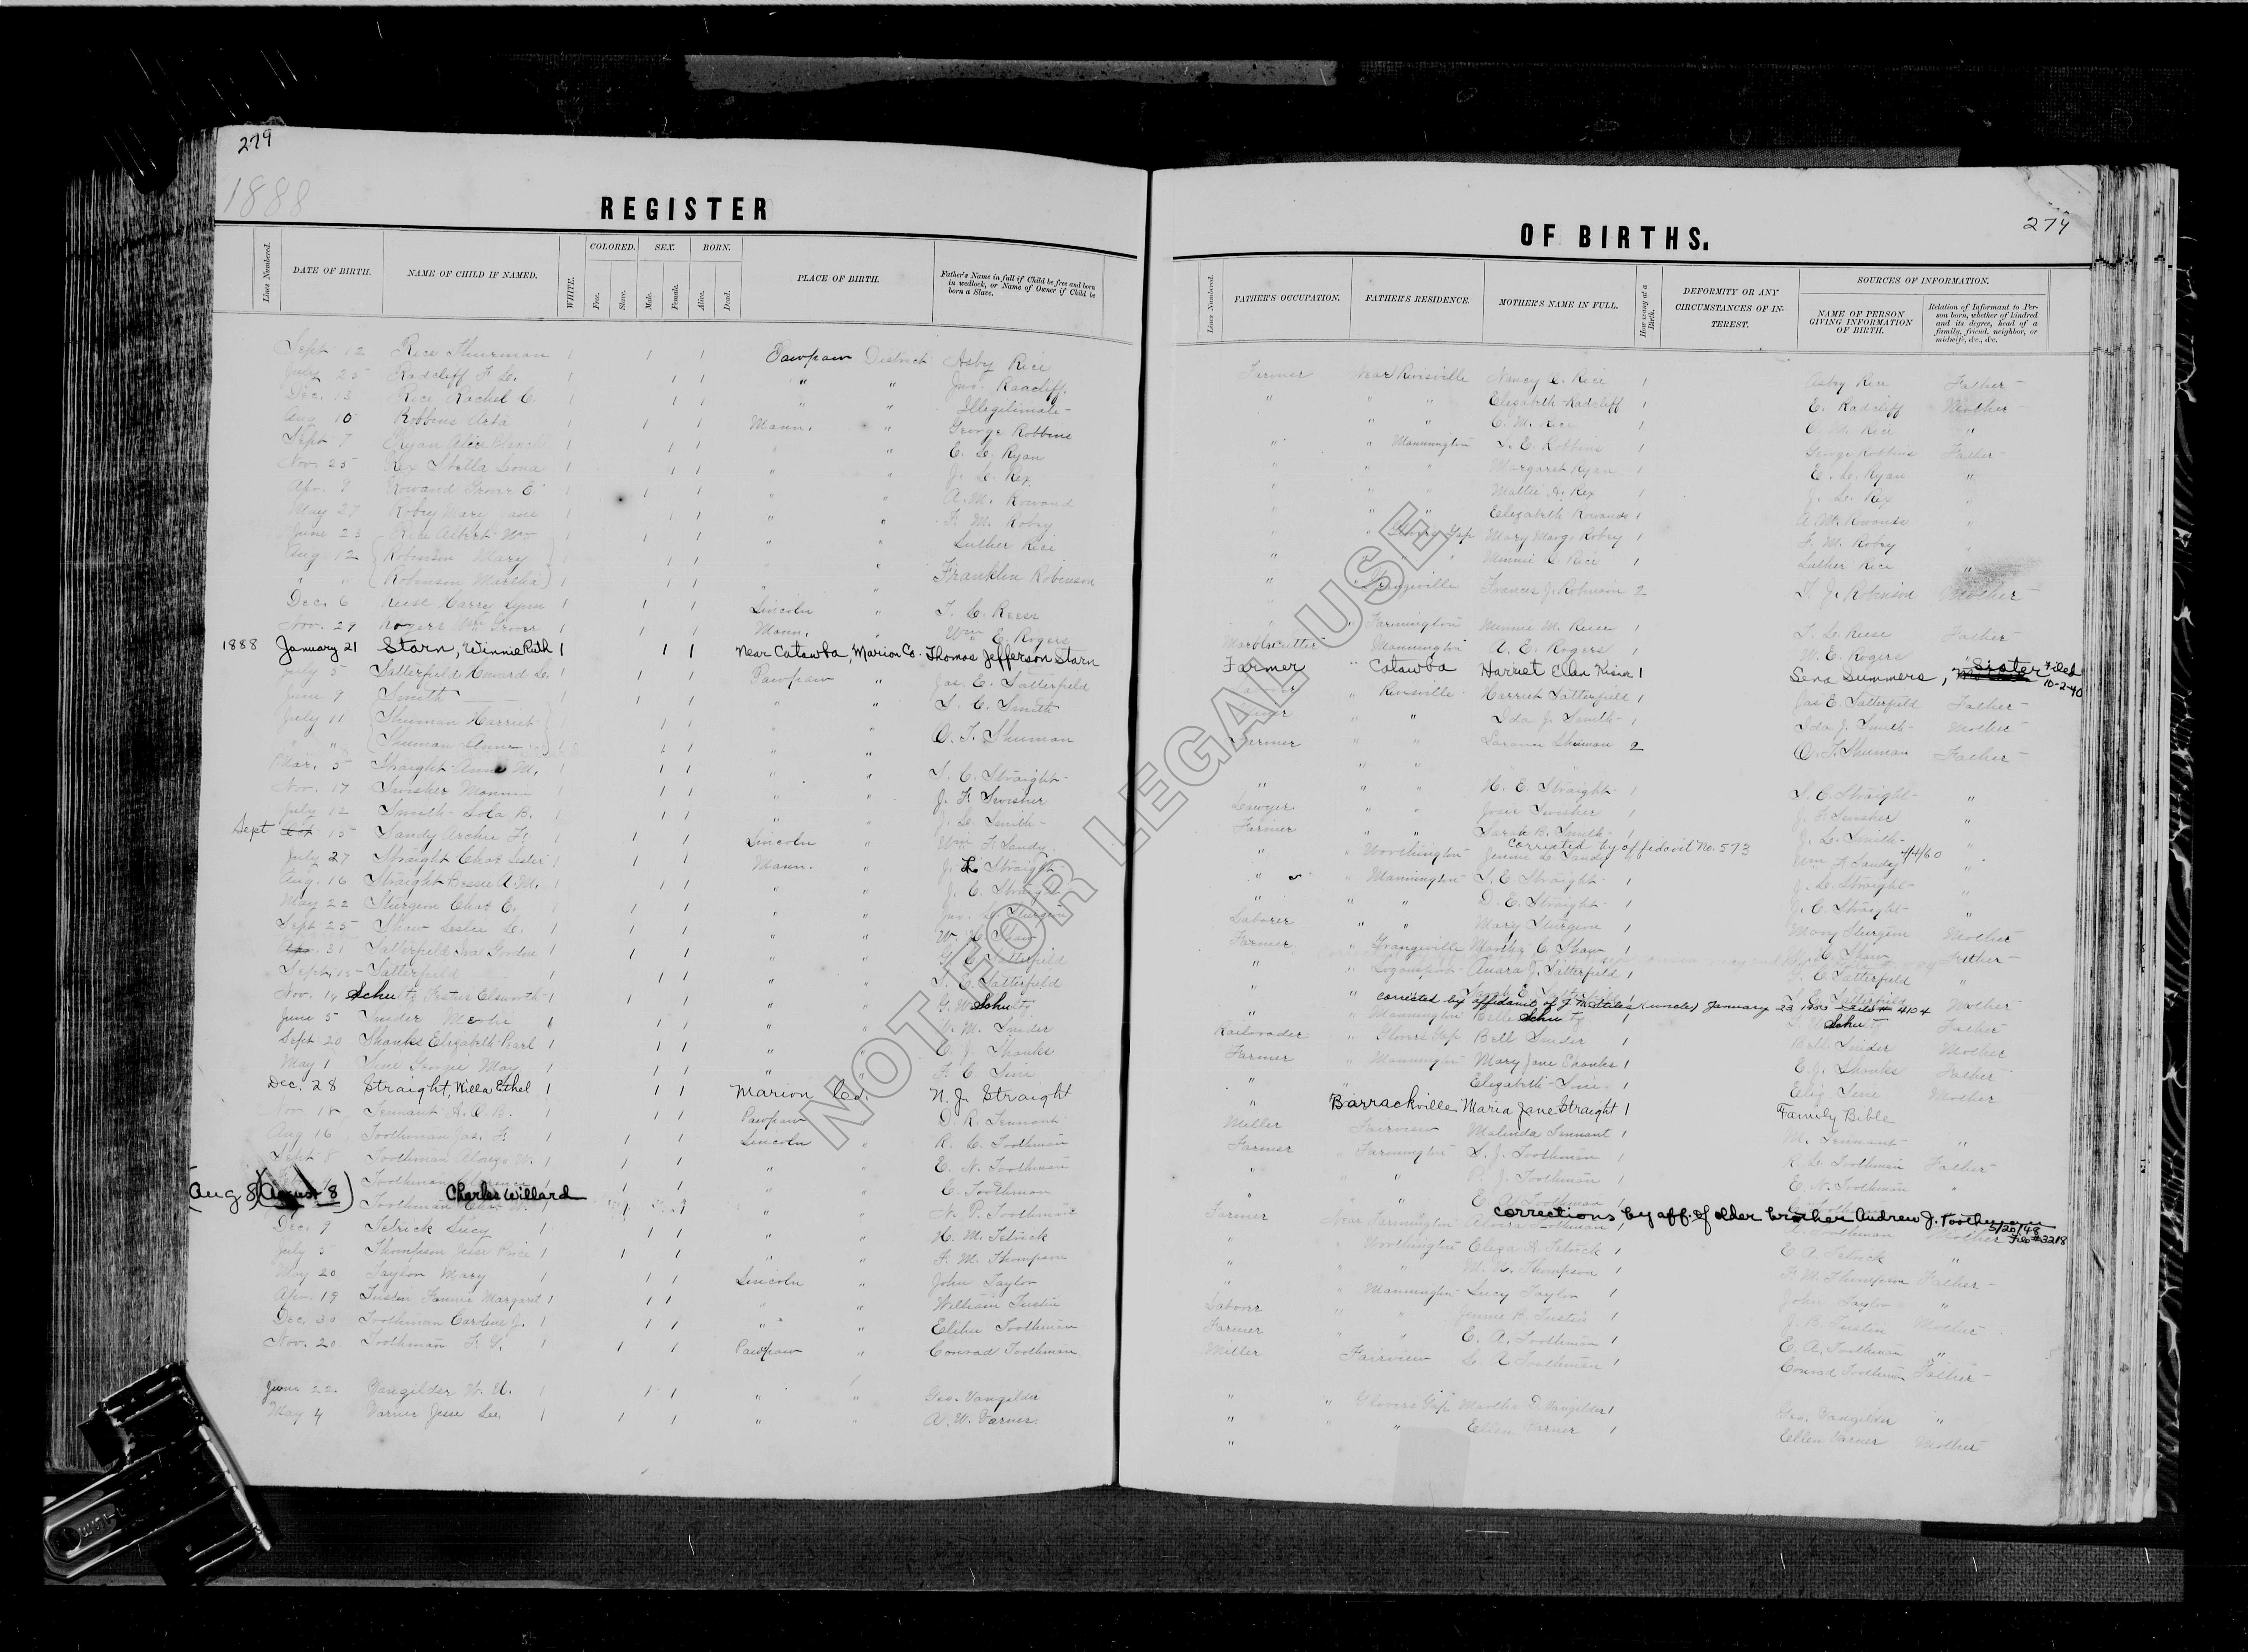 279
1888
REGISTER
Lines Numbered.
DATE OF BIRTH.
NAME OF CHILD IF NAMED.
WHITE.
COLORED.
Free.
Slave.
SEX.
Male.
Female.
BORN.
Alive.
Dead.
PLACE OF BIRTH.
Father's Name in full if Child be free and born in wedlock, or Name of Owner if Child be born a Slave.
Sept 12 Rice Thurman 1 1 1 Pawpaw District Asby Rice
July 25 Radcliff F. L. 1 1 1 " " Jno. Radcliff
Dec. 13 Rice Rachel C. 1 1 1 " " Illegitimate
Aug 10 Robbins Asta 1 1 1 Mann. " George Robbins
Sept 7 Ryan Alice 1 1 1 " " E. L. Ryan
Nov. 25 Rex Stella Leona 1 1 1 " " J. L. Rex
Apr. 9 Rowand Grover E 1 1 1 " " A. M. Rowand
May 27 Robey Mary Jane 1 1 1 " " F. M. Robey
June 23 Rice Albert Wm 1 1 1 " " Luther Rice
Aug 12 Robinson Mary 1 1 1
" " Robinson Martha 1 1 1 " " Franklin Robinson
Dec. 6 Reese Harry Lynn 1 1 1 Lincoln " T. L. Reese
Nov. 29 Rogers Wm Grover 1 1 1 Mann. " Wm E. Rogers
1888 January 21 Starn, Winnie Ruth 1 1 1 Near Catawba, Marion Co. Thomas Jefferson Starn
July 5 Satterfield Howard L. 1 1 1 Pawpaw " Jas. E. Satterfield
June 9 Smith 1 1 1 " " S. C. Smith
July 11 Shuman Harriet
" " Shuman Anna " " O. T. Shuman
Mar. 5 Straight Anna M. 1 1 1 " " S. C. Straight
Nov. 17 Swisher 1 1 1 " " J. F. Swisher
July 12 Smith Lola B. 1 1 1 " " J. L. Smith
Sept 15 Sandy Archie F. 1 1 1 Lincoln " Wm F. Sandy
July 27 Straight Chas Lester 1 1 1 Mann. " J. L. Straight
Aug. 16 Straight Bessie A. M. 1 1 1 " " J. C. Straight
May 22 Sturgeon Chas E. 1 1 1 " " Jno. L. Sturgeon
Sept 25 Shaw Leslie L. 1 1 1 " " W. C. Shaw
31 Satterfield Ira Gordon 1 1 1 " " G. C. Satterfield
Sept. 15 Satterfield 1 1 1 " " S. E. Satterfield
Nov. 14 Schultz Festus Elsworth 1 1 1 " " G. W. Schultz
June 5 Snider 1 1 1 " " M. Snider
Sept 20 Shanks Elizabeth Pearl 1 1 1 " " E. J. Shanks
May 1 Sine Georgie May 1 1 1 " " F. C. Sine
Dec. 28 Straight, Willa Ethel 1 1 1 Marion Co. N. J. Straight
Nov 18 Tennant A. O. B. 1 1 1 Pawpaw D. R. Tennant
Aug 16 Toothman Jas. F. 1 1 1 Lincoln " R. L. Toothman
Sept 8 Toothman Alonzo W. 1 1 1 " " E. N. Toothman
Toothman 1 1 1 " " C. Toothman
(Aug 8) (August 8) Toothman Charles Willard " " N. P. Toothman
Dec. 9 Tetrick Lucy 1 1 1 " " H. M. Tetrick
July 5 Thompson Jesse Price 1 1 1 " " F. M. Thompson
May 20 Taylor Mary 1 1 1 Lincoln " John Taylor
Apr. 19 Tustin Fannie Margaret 1 1 1 " " William Tustin
Dec. 30 Toothman Caroline J. 1 1 1 " " Elihu Toothman
Nov. 20 Toothman F. V. 1 1 1 Pawpaw " Conrad Toothman
June 22 Vangilder W. U. 1 1 1 " " Geo. Vangilder
May 4 Varner Jesse Lee 1 1 1 " " A. W. Varner
OF BIRTHS.
274
Lines Numbered.
FATHER'S OCCUPATION.
FATHER'S RESIDENCE.
MOTHER'S NAME IN FULL.
How many at a Birth.
DEFORMITY OR ANY CIRCUMSTANCES OF INTEREST.
SOURCES OF INFORMATION.
NAME OF PERSON GIVING INFORMATION OF BIRTH.
Relation of Informant to Person born, whether of kindred and its degree, head of a family, friend, neighbor, or midwife, &c., &c.
Farmer Near Rivesville Nancy C. Rice 1 Asby Rice Father
" " " Elizabeth Radcliff 1 E. Radcliff Mother
" " C. M. Rice 1 C. M. Rice "
" " Mannington S. E. Robbins 1 George Robbins Father
" " " Margaret Ryan 1 E. L. Ryan "
" " " Mattie A. Rex 1 J. L. Rex "
" " " Elizabeth Rowand 1 A. M. Rowand "
" " Glovers Gap Mary Marg. Robey 1 F. M. Robey "
" " " Minnie C Rice 1 Luther Rice "
" " Grangeville Frances J. Robinson 2 F. J. Robinson Mother
" " Farmington Minnie M. Reese 1 T. L. Reese Father
Marblecutter " Mannington A. E. Rogers 1 W. E. Rogers "
Farmer " Catawba Harriet Ellen Kisner 1 Sena Summers, Sister Filed 10-2-40
" Rivesville Harriet Satterfield 1 Jas E. Satterfield Father
" " Ida J. Smith 1 Ida J. Smith Mother
Farmer " " Shuman 2 O. T. Shuman Father
" " " H. E. Straight 1 S. C. Straight "
Lawyer " " Josie Swisher 1 J. F. Swisher "
Farmer " " Sarah B. Smith 1 J. L. Smith "
corrected by affidavit No. 573 4/4/60
" " Worthington Jennie L. Sandy Wm F. Sandy "
" " Mannington S. E. Straight 1 J. L. Straight "
" " " D. E. Straight 1 J. C. Straight "
Laborer " " Mary Sturgeon 1 Mary Sturgeon Mother
Farmer " Grangeville Martha C. Shaw 1 W. C. Shaw Father
" " Logansport Anara J. Satterfield 1 G. C. Satterfield
" " Sarah E. Satterfield S. E. Satterfield Mother
corrected by affidavit of J M Stiles (uncle) January 23 1950 File # 4104
" Mannington Belle Schultz 1 Schultz Father
Railroader " Glovers Gap Bell Snider 1 Bell Snider Mother
Farmer " Mannington Mary Jane Shanks 1 E. J. Shanks Father
" " Elizabeth Sine 1 Eliz. Sine Mother
" Barrackville Maria Jane Straight 1 Family Bible
Miller Fairview Malinda Tennant 1 M. Tennant "
Farmer " Farmington S. J. Toothman 1 R. L. Toothman Father
" " " P. J. Toothman 1 E. N. Toothman "
" " " E. A. Toothman 1
corrections by aff. of older brother Andrew J. Toothman 5/20/48 File #3218
Farmer Near Farmington Toothman 1 Toothman Mother
" Worthington Eliza A. Tetrick 1 E. A. Tetrick "
" " " Thompson 1 F. M. Thompson Father
" " Mannington Lucy Taylor 1 John Taylor "
Laborer " " Jennie B. Tustin 1 J. B. Tustin Mother
Farmer " " E. A. Toothman 1 E. A. Toothman "
Miller Fairview L. A Toothman 1 Conrad Toothman Father
" " Glovers Gap Martha D. Vangilder 1 Geo. Vangilder "
" " " Ellen Varner 1 Ellen Varner Mother
"
NOT FOR LEGAL USE